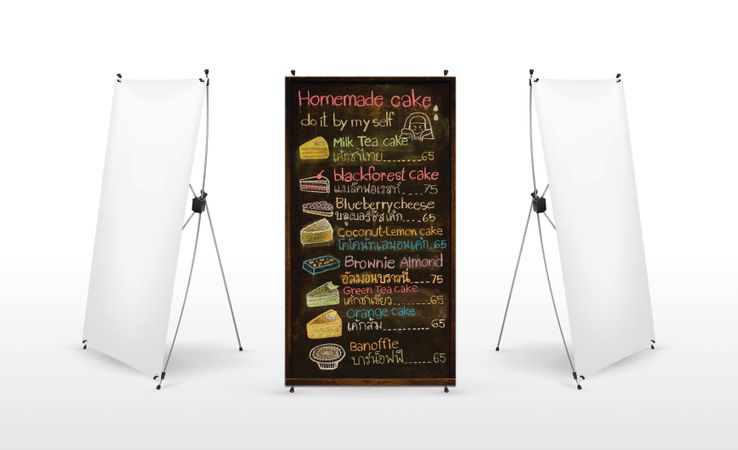 Homemade cake
do it by my self
Milk Tea cake
เค้กชาไทย......65
blackforest cake
แบล็คฟอเรสท์....75
Blueberrycheese
บลูเบอร์ชีสเค้ก...65
Coconut-Lemon cake
โคโคนัทเลมอนเค้ก 65
Brownie Almond
อัลมอนบราวนี่.....75
Green Tea cake
เค้กชาเขียว......65
Orange cake
เค้กส้ม.........65
Banoffie
บาร์น็อฟฟี่.......65